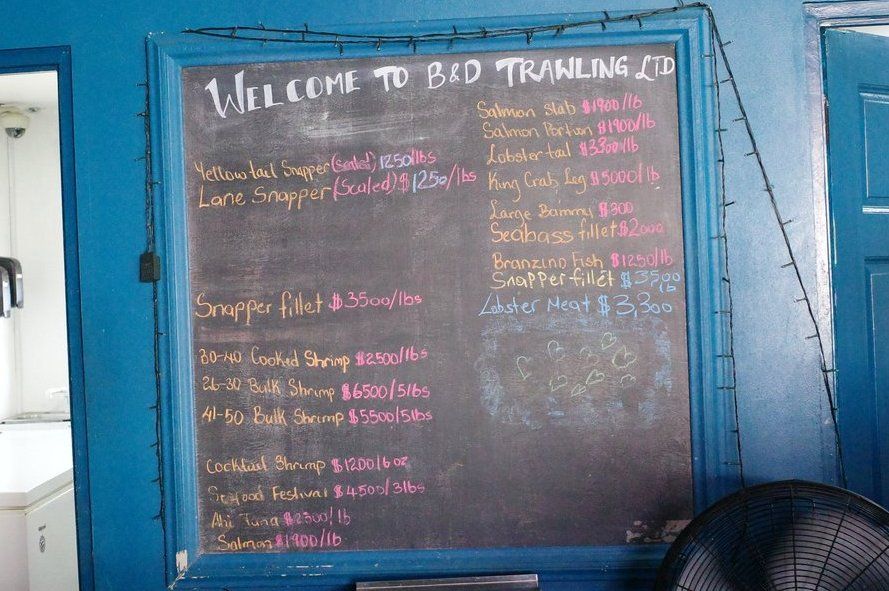 WELCOME TO B&D TRAWLING LTD
Yellow tail Snapper (scaled) 1250/lbs
Lane Snapper (Scaled) $1250/lbs
Snapper fillet $3500/lbs
30-40 Cooked Shrimp $2500/lbs
26-30 Bulk Shrimp $6500/5lbs
41-50 Bulk Shrimp $5500/5lbs
Cocktail Shrimp $1200/6oz
Seafood Festival $4500/3lbs
Ahi Tuna $2300/lb
Salmon $1900/lb
Salmon slab $1900/lb
Salmon Portion $1900/lb
Lobster tail $3300/lb
King Crab Leg $5000/lb
Large Bammy $300
Seabass fillet $2000
Branzino Fish $1250/lb
Snapper fillet $3500
lb
Lobster Meat $3,300